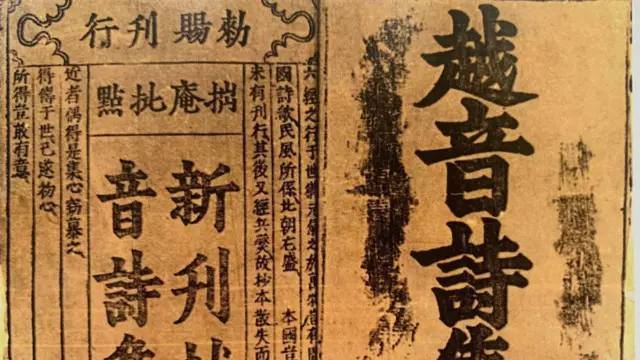 越音詩
勑賜刊行
拙庵批點
六經之行于世
國詩歌民風所係北朝右盛 本國音
未有刊行其後又經兵燹故抄本散失而
新刊
音詩
近者偶得是集心竊慕之
得傳于世已遂初心
所得豈敢有意